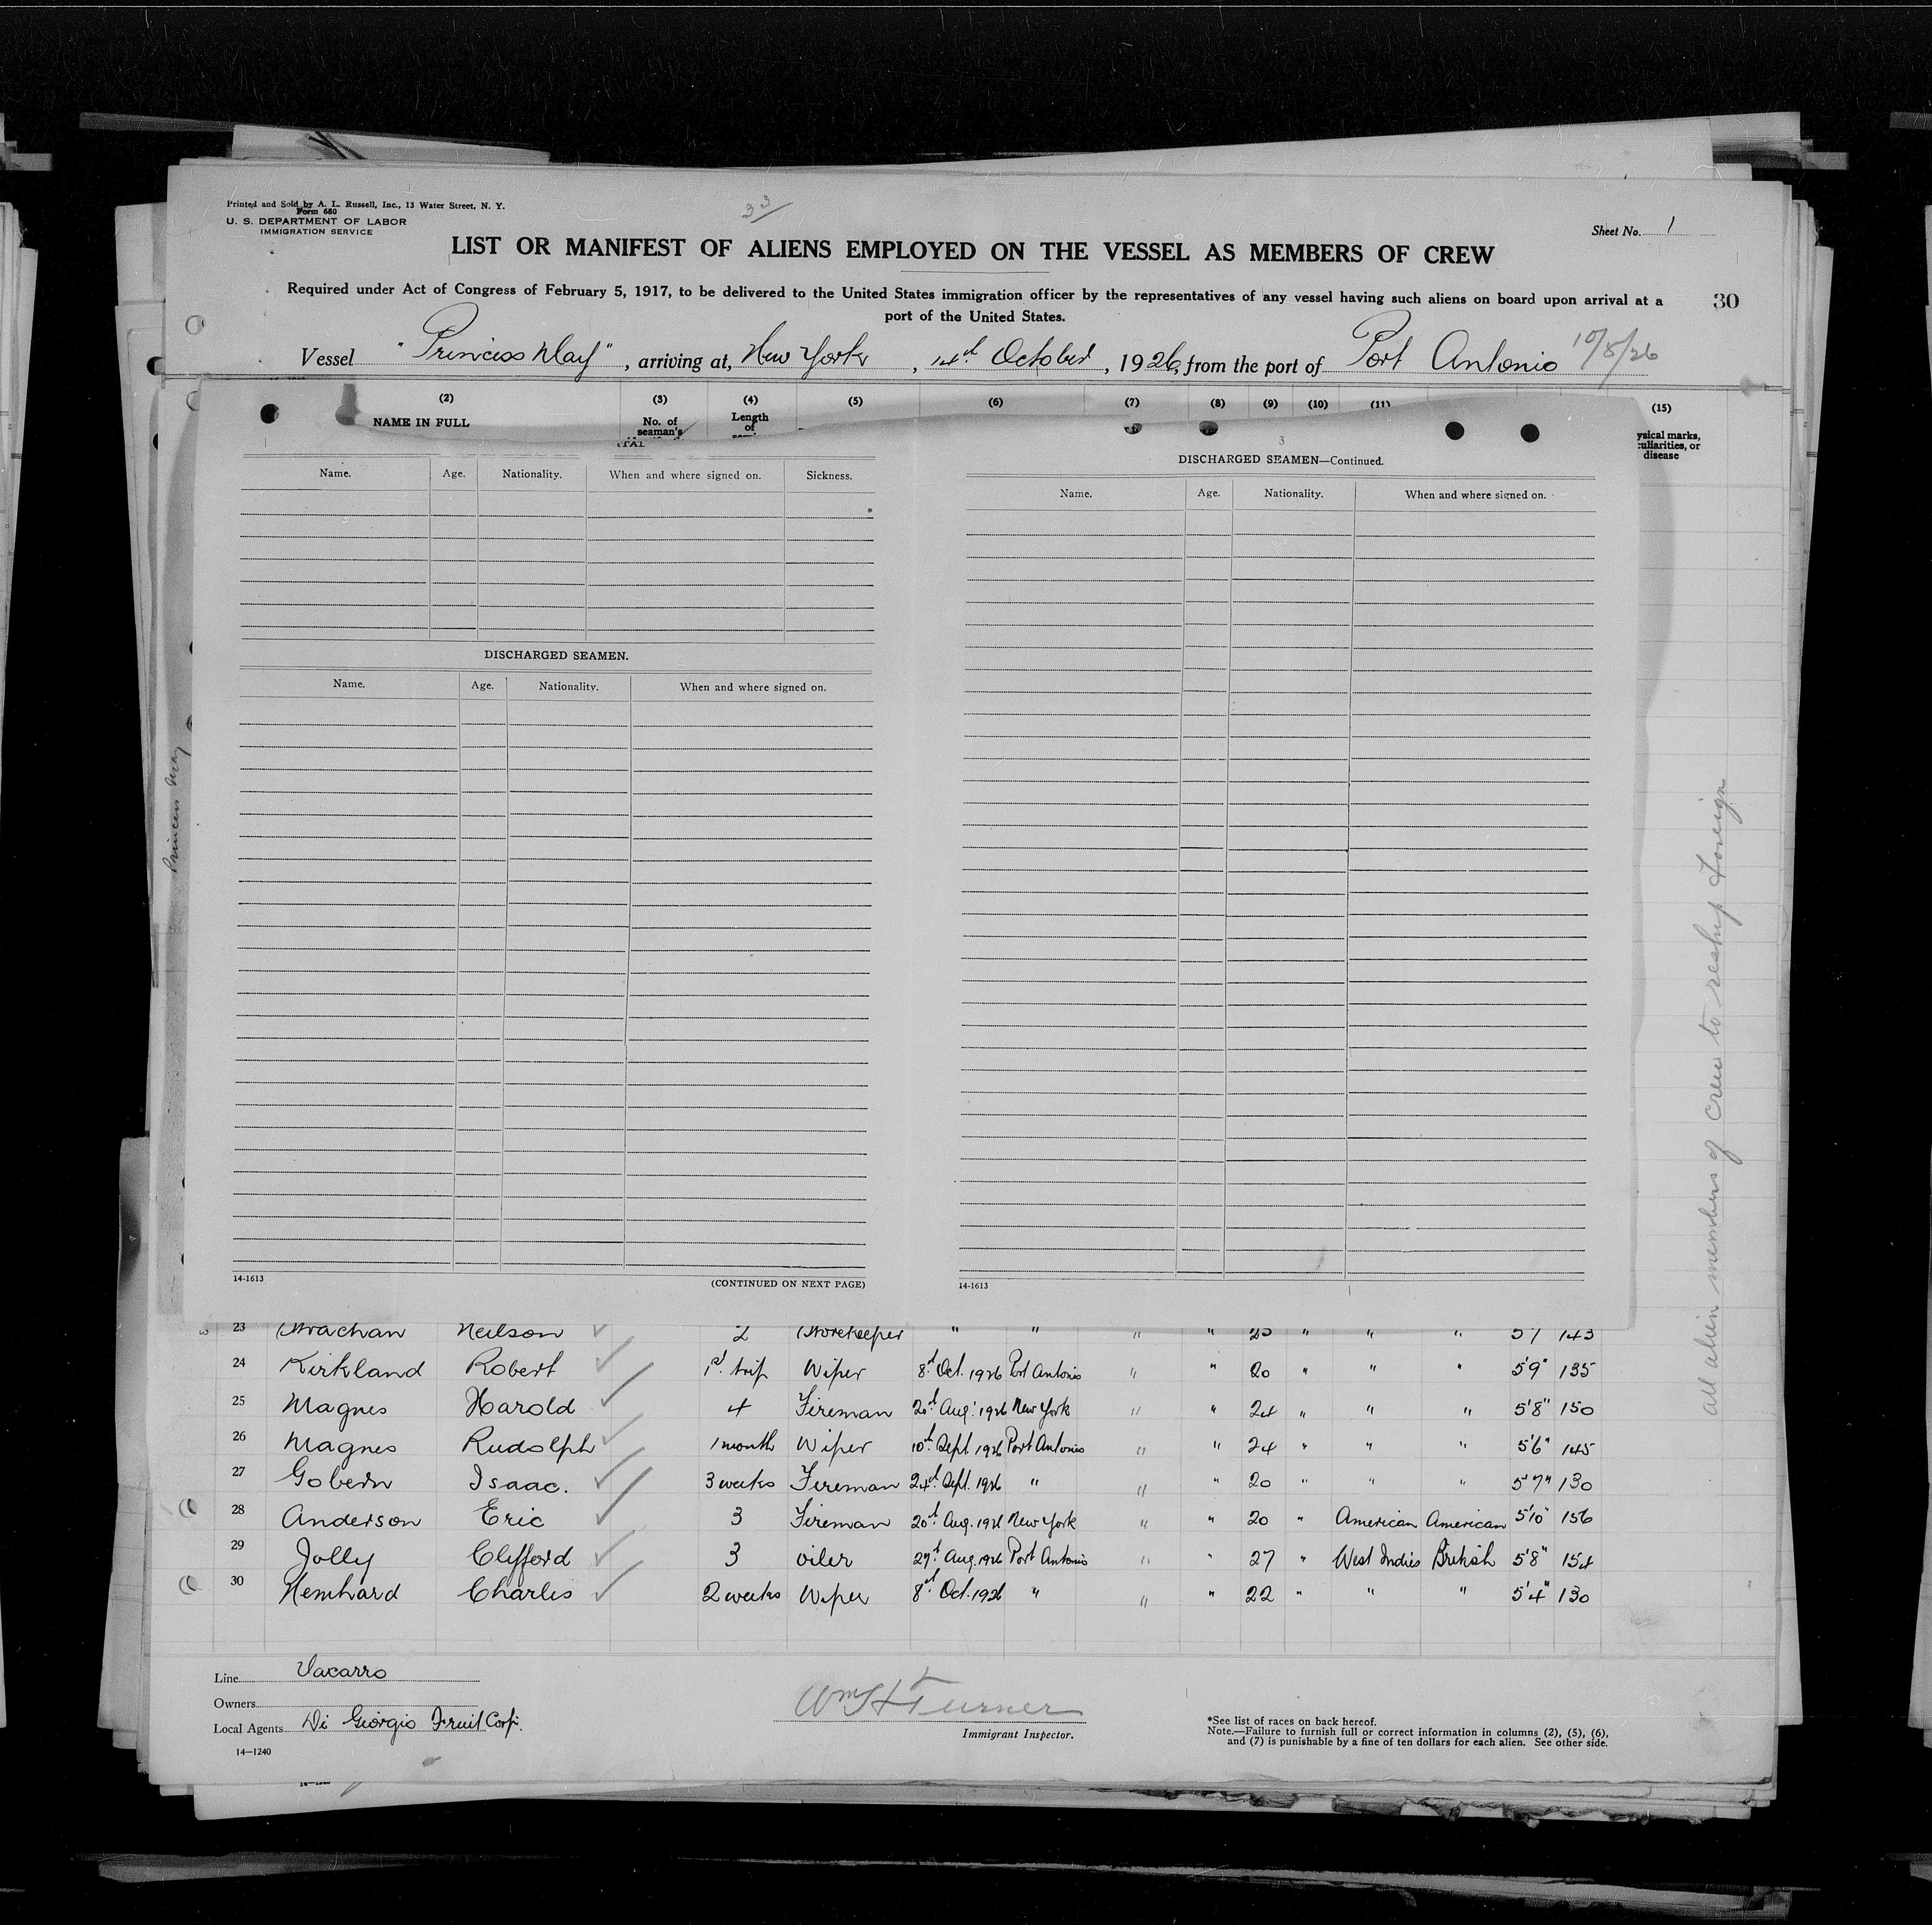 Printed and Sold by A. L. Russell, Inc., 13 Water Street, N. Y.
Form 680
U. S. DEPARTMENT OF LABOR
IMMIGRATION SERVICE
33
Sheet No. 1
LIST OR MANIFEST OF ALIENS EMPLOYED ON THE VESSEL AS MEMBERS OF CREW
Required under Act of Congress of February 5, 1917, to be delivered to the United States immigration officer by the representatives of any vessel having such aliens on board upon arrival at a
port of the United States.
30
Vessel "Princess May", arriving at, New York, 14th October, 1926, from the port of Port Antonio 10/8/26
(2) (3) (4) (5) (6) (7) (8) (9) (10) (11) (15)
NAME IN FULL No. of seaman's Length of
ysical marks,
culiarities, or
disease
Name. Age. Nationality. When and where signed on. Sickness.
DISCHARGED SEAMEN.
Name. Age. Nationality. When and where signed on.
14-1613 (CONTINUED ON NEXT PAGE)
3
DISCHARGED SEAMEN—Continued.
Name. Age. Nationality. When and where signed on.
14-1613
Princess May
all alien members of crew to reship foreign
23 Strachan Neilson 2 Storekeeper " " " " 25 " " " 5'7 143
24 Kirkland Robert 1st trip Wiper 8th Oct. 1926 Port Antonio " " 20 " " " 5'9" 135
25 Magnes Harold 4 Fireman 20th Aug. 1926 New York " " 24 " " " 5'8" 150
26 Magnes Rudolph 1 month Wiper 10th Sept 1926 Port Antonio " " 24 " " " 5'6" 145
27 Gobern Isaac. 3 weeks Fireman 24th Sept. 1926 " " " 20 " " " 5'7" 130
28 Anderson Eric 3 Fireman 20th Aug. 1926 New York " " 20 " American American 5'10" 156
29 Jolly Clifford 3 oiler 27th Aug. 1926 Port Antonio " " 27 " West Indies British 5'8" 154
30 Hemhard Charles 2 weeks Wiper 8th Oct. 1926 " " " 22 " " " 5'4" 130
Line Vacarro
Owners
Local Agents Di Giorgio Fruit Corp.
14—1240
Wm H Turner
Immigrant Inspector.
*See list of races on back hereof.
Note.—Failure to furnish full or correct information in columns (2), (5), (6),
and (7) is punishable by a fine of ten dollars for each alien. See other side.